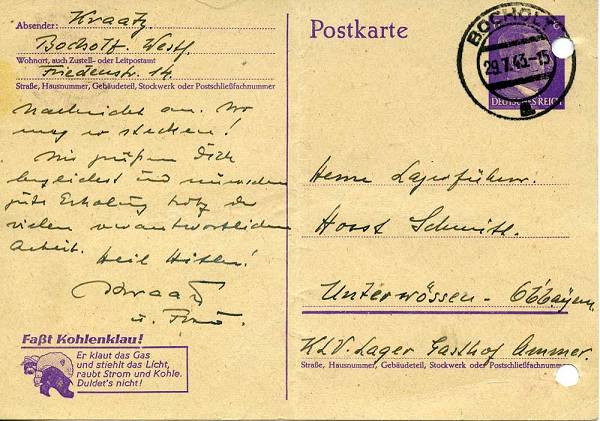 Absender: Kraatz
Bocholt. Westf.
Wohnort, auch Zustell- oder Leitpostamt
Friedenstr. 14.
Straße, Hausnummer, Gebäudeteil, Stockwerk oder Postschließfachnummer
Nachricht an. Wo
mag er stecken!
Wir grüßen Dich
und wünschen
gute Erholung trotz der
vielen verantwortlichen
Arbeit. Heil Hitler!
Kraatz
u. Frau.
Faßt Kohlenklau!
Er klaut das Gas
und stiehlt das Licht,
raubt Strom und Kohle.
Duldet's nicht!
Postkarte
BOCHOLT
29.7.43-15
a
DEUTSCHES REICH
Herrn Lagerführer.
Horst Schmitt.
Unterwössen - Obbayern.
KLV. Lager Gasthof Ammer.
Straße, Hausnummer, Gebäudeteil, Stockwerk oder Postschließfachnummer